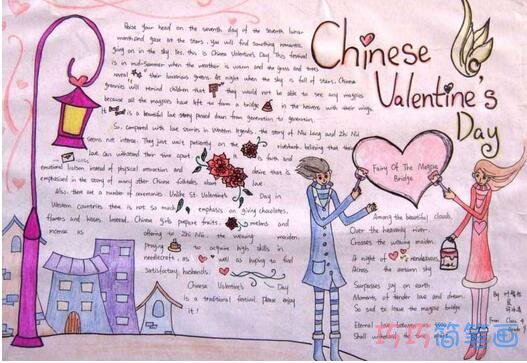 Chinese
Valentine's
Day
Raise your head on the seventh day of the seventh lunar
month and gaze at the stars, you will find something romantic
going on in the sky. Yes, this is Chinese Valentine's Day. This festival
is in mid-summer when the weather is warm and the grass and trees
reveal their luxurious greens. At night when the sky is full of stars, Chinese
grannies will remind children that they would not be able to see any magpies
because all the magpies have left to form a bridge in the heavens with their wings.
It is a beautiful love story passed down from generation to generation.
So, compared with love stories in Western legends, the story of Niu Lang and Zhi Nü
seems not intense. They just wait patiently on the husbands, believing that their
love can withstand their time apart. is faith and
emotional liaison instead of physical attraction and desire that is
emphasized in the story of many other Chinese folktales about love
Also, there are a number of ceremonies. Unlike St. Valentine's Day in
Western countries there is not so much emphasis on giving chocolates,
flowers and kisses. Instead, Chinese girls prepare fruits, melons and
incense as offering to Zhi Nü, the weaving maiden,
praying to acquire high skills in
needlecraft, as well as hoping to find
satisfactory husbands.
Chinese Valentine's Day
is a traditional festival. Please enjoy
it!
Fairy Of The Magpie
Bridge
Among the beautiful clouds,
Over the heavenly river,
Crosses the weaving maiden.
A night of rendezvous,
Across the autumn sky
Surpasses joy on earth.
Moments of tender love and dream,
So sad to leave the magpie bridge
Eternal
Shall
By
From Class 4
巧巧简笔画